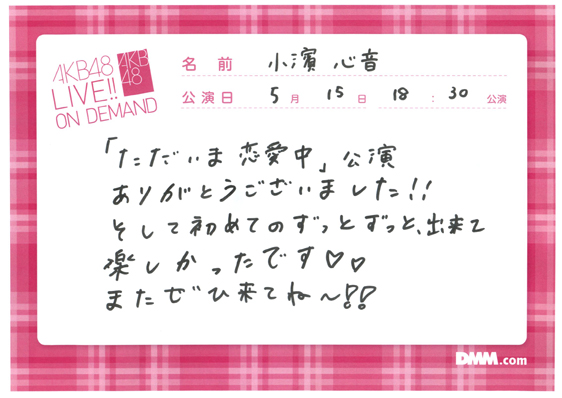 AKB48
LIVE!!
ON DEMAND
AKB
48
名前 小濱 心音
公演日 5月 15日 18:30 公演
「ただいま恋愛中」公演
ありがとうございました!!
そして初めてのずっとずっと、出来て
楽しかったです♡♡
またぜひ来てね〜!!
DMM.com